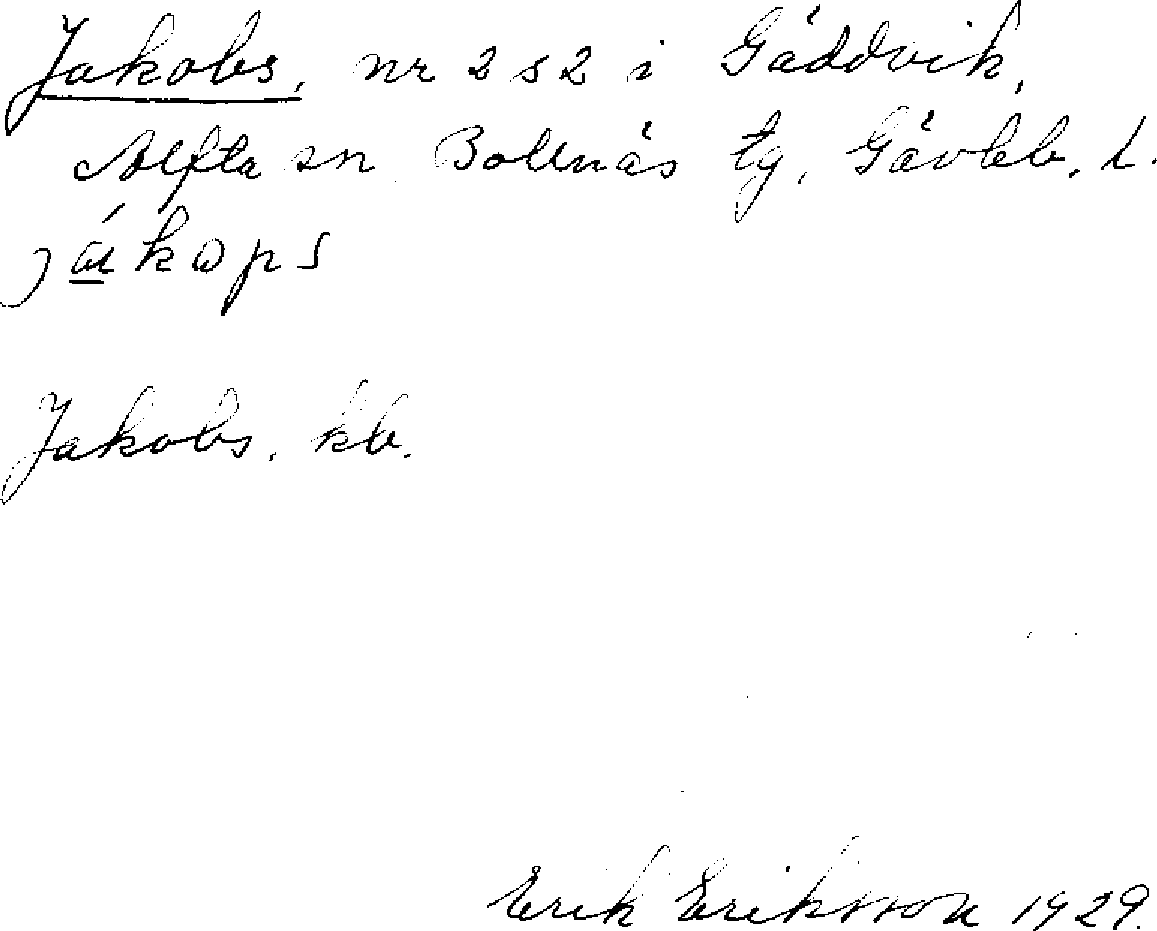 Jakobs, nr 2 s 2 i Gäddvik,
Alfta sn Bollnäs tg, Gävleb. l.
jákops
Jakobs. kb.
Erik Eriksson 1929.